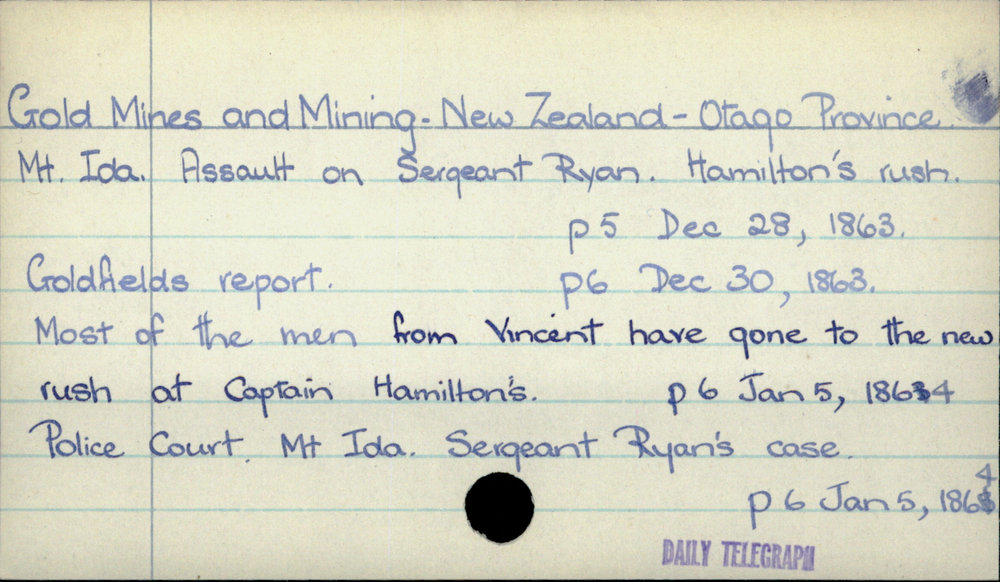 Gold Mines and Mining - New Zealand - Otago Province.
Mt. Ida. Assault on Sergeant Ryan. Hamilton's rush.
p 5 Dec 28, 1863.
Goldfields report. p6 Dec 30, 1863.
Most of the men from Vincent have gone to the new
rush at Captain Hamilton's. p 6 Jan 5, 1864
Police Court. Mt Ida. Sergeant Ryan's case.
p 6 Jan 5, 1864
DAILY TELEGRAPH